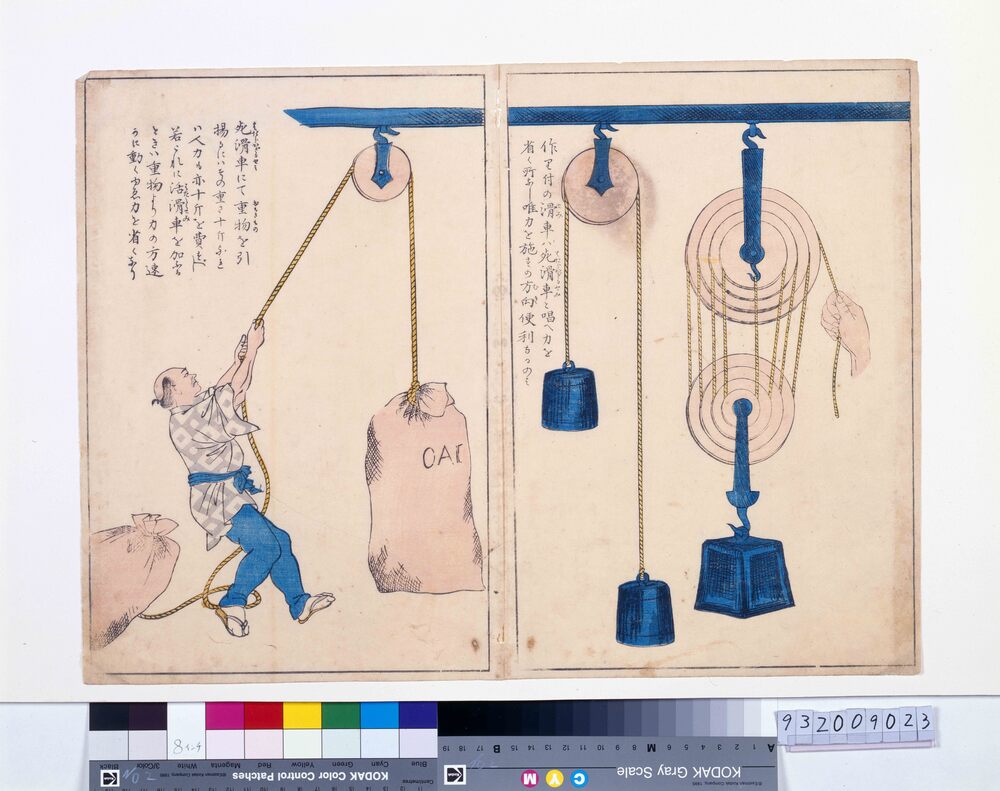 作り付の滑車ハ死滑車と唱へ力を
省く所なし唯力を施すの方向便利なるのミ
死滑車にて重物を引
揚るにハその重さ十斤なれ
ハ人力も亦十斤を費すべし
若しこれに活滑車を加ふる
ときハ重物より力の方速
かに動くゆゑ力を省くなり
OAI
932009023
KODAK Color Control Patches
Black
3/Color
White
Magenta
Red
Yellow
Green
Cyan
Blue
Centimetres
KODAK Gray Scale
C Y M
A 1 2 3 4 5 6 M 8 9 10 11 12 13 14 15 B 17 18 19